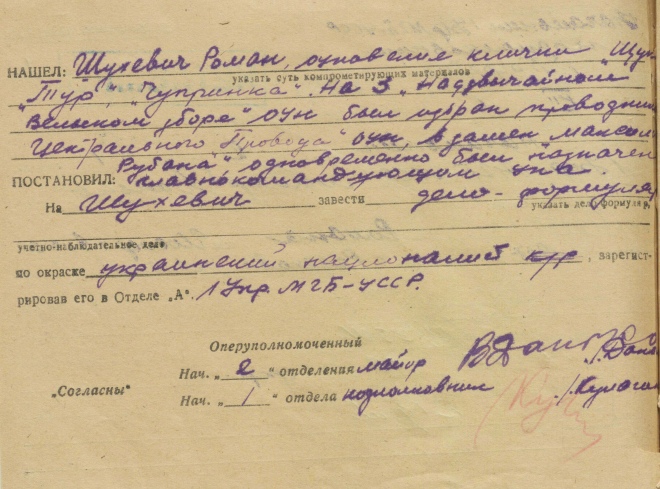 НАШЕЛ: Шухевич Роман, оуновские клички „Щук
указать суть компрометирующих материалов
„Тур", „Чупринка". На 3 „Надзвычайном
Великом зборе" ОУН был избран проводник
Центрального Провода" ОУН, взамен Максим
Рубана" одновременно был назначен
ПОСТАНОВИЛ: главнокомандующим УПА.
На Шухевич завести дело-формуляр
указать дело формуляр,
учетно-наблюдательное дело
по окраске украинский националист к/р, зарегист-
рировав его в Отделе „А". 1 Упр. МГБ-УССР.
Оперуполномоченный
Нач. „2" отделения майор /Дани
„Согласны"
Нач. „1" отдела подполковник /Кулагин